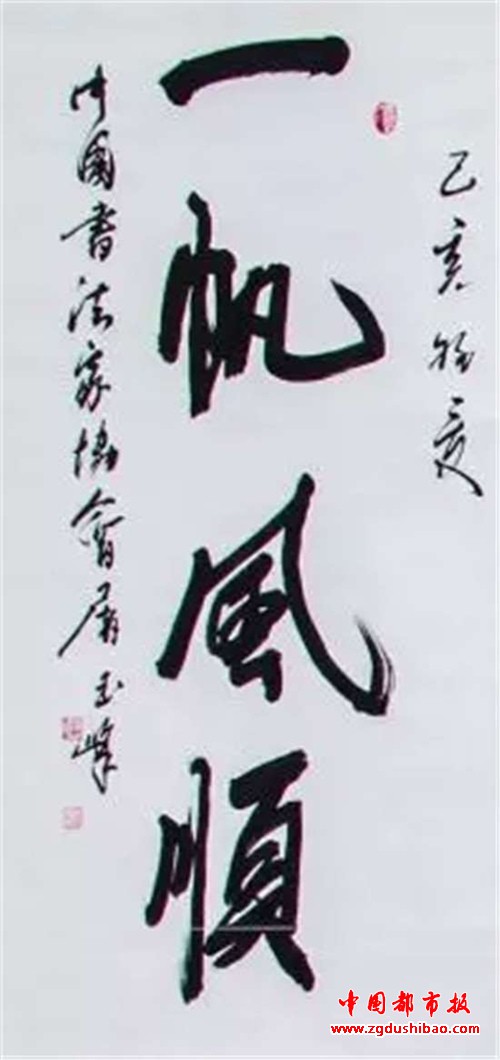 己亥初夏
一帆風順
中國書法家協會玉峰
中国都市报
www.zgdushibao.com